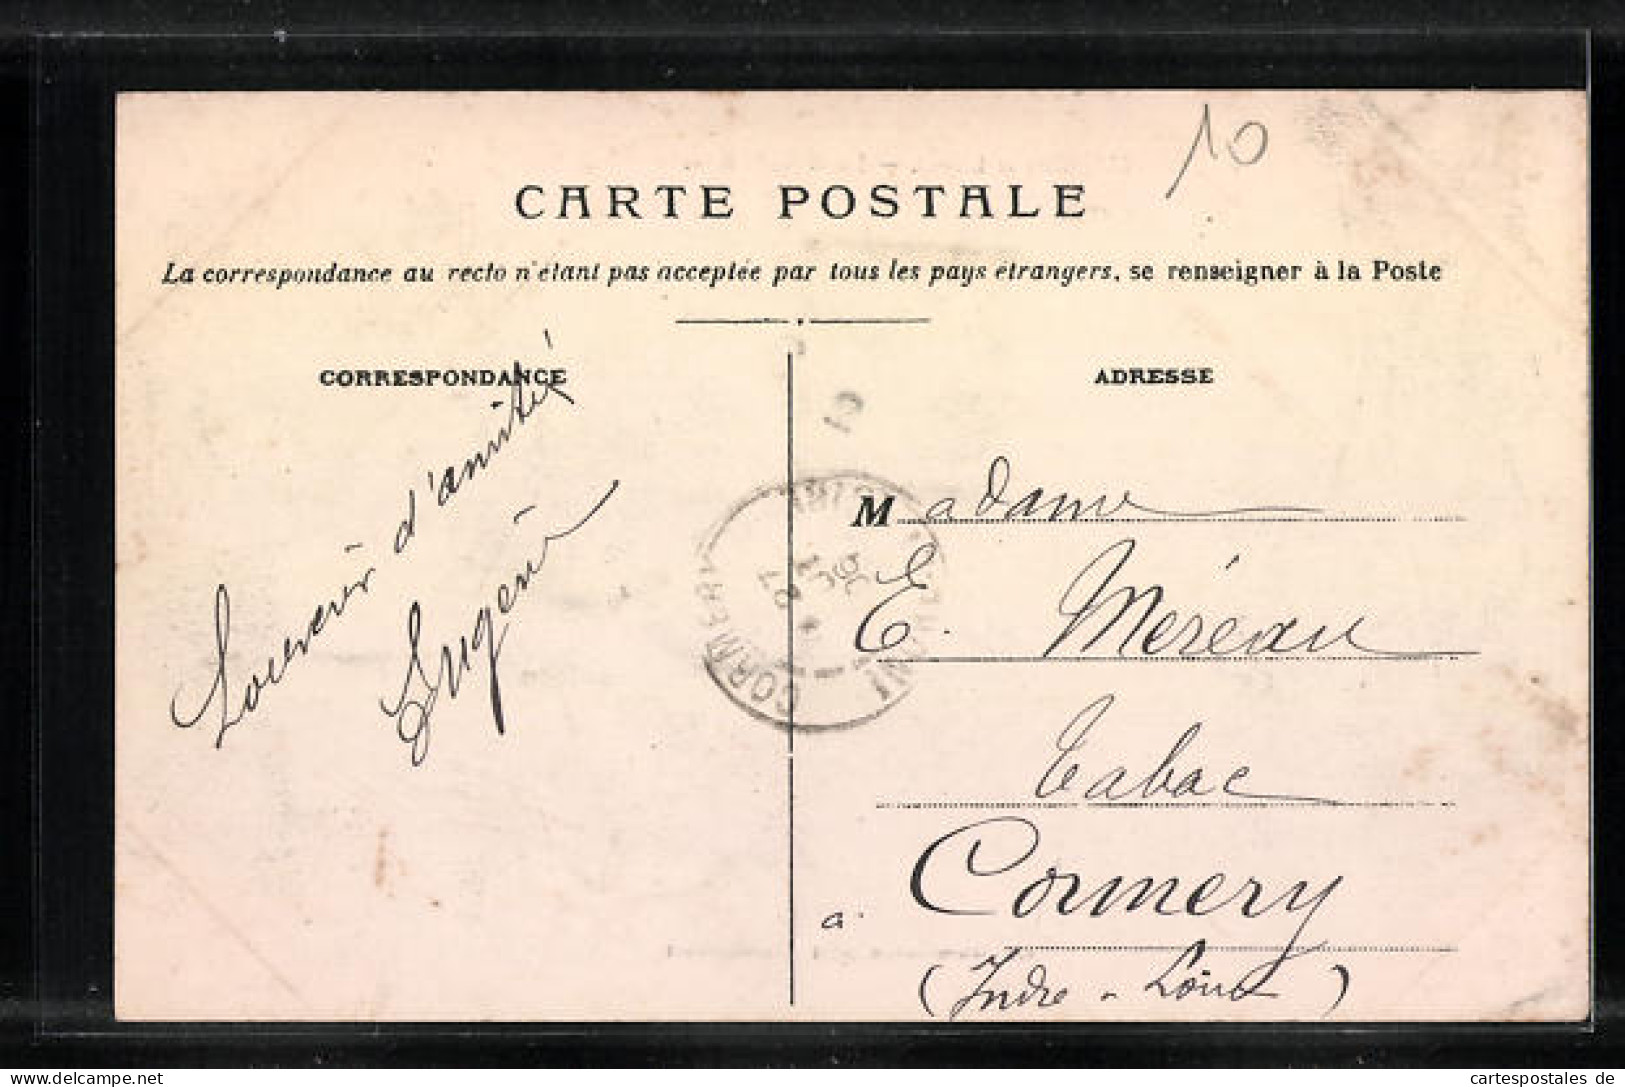 10
CARTE POSTALE
La correspondance au recto n'étant pas acceptée par tous les pays étrangers, se renseigner à la Poste
CORRESPONDANCE
Souvenir d'amitié
Eugénie
ADRESSE
Madame
E. Méreau
Tabac
à Cormery
(Indre-Loire)
CORMERY
cartespostales de